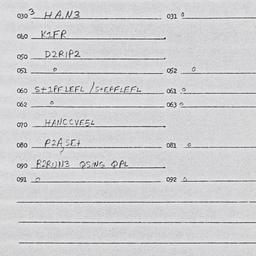 030 3 HAN3 031 0
040 K1FR
050 D2RIP2
051 0 052 0
060 S+IPFLEFL /S+EPFLEFL 061 0
062 0 063 0
070 HANCCVEE5L
080 P2ASE+ 081 0
090 B2RUN3 QSING QPL
091 0 092 0